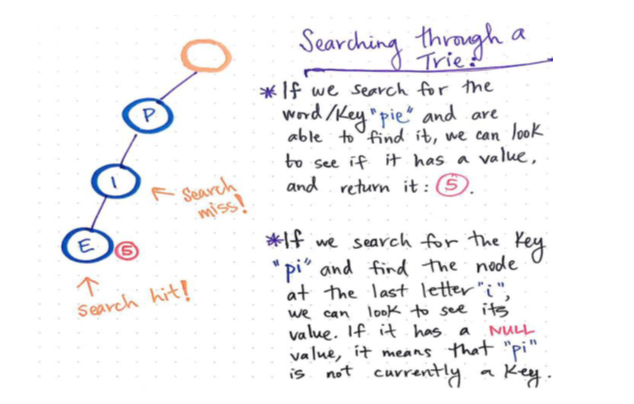 Searching through a
Trie:
*If we search for the
word/key "pie" and are
able to find it, we can look
to see if it has a value,
and return it: 5.
*If we search for the key
"pi" and find the node
at the last letter "i",
we can look to see its
value. If it has a NULL
value, it means that "pi"
is not currently a key.
P
I
← Search
miss!
E 5
↑
Search hit!